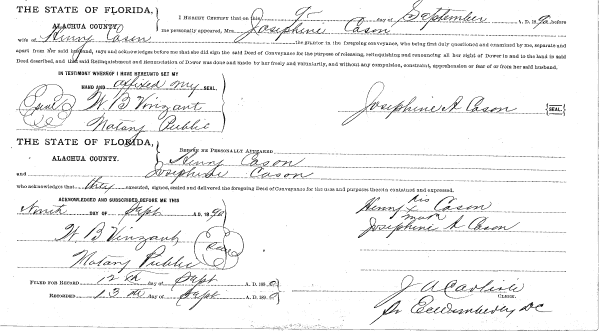 THE STATE OF FLORIDA,
ALACHUA COUNTY.
I HEREBY CERTIFY that on this 9th day of September A. D. 1890, before
me personally appeared, Mrs. Josephine Cason
wife of Henry Cason the grantor in the foregoing conveyance, who being first duly questioned and examined by me, separate and
apart from her said husband, says and acknowledges before me that she did sign the said Deed of Conveyance for the purpose of releasing, relinquishing and renouncing all her right of Dower in and to the land in said
Deed described, and that said Relinquishment and Renunciation of Dower was done and made by her freely and voluntarily, and without any compulsion, constraint, apprehension or fear of or from her said husband.
IN TESTIMONY WHEREOF I HAVE HEREUNTO SET MY
HAND AND affixed my SEAL.
Seal W. B Vinzant
Notary Public
Josephine A Cason SEAL.
THE STATE OF FLORIDA,
ALACHUA COUNTY.
BEFORE ME PERSONALLY APPEARED
Henry Cason
and Josephine Cason
who acknowledges that they executed, signed, sealed and delivered the foregoing Deed of Conveyance for the uses and purposes therein contained and expressed.
ACKNOWLEDGED AND SUBSCRIBED BEFORE ME THIS
Ninth DAY OF Sept A. D. 1890
W. B Vinzant
Seal
Notary Public
Henry his x mark Cason
Josephine A Cason
FILED FOR RECORD 12th day of Sept A. D. 1890
RECORDED 13th day of Sept A. D. 1890
J A Carlisle
CLERK.
Pr E C Wimberly DC